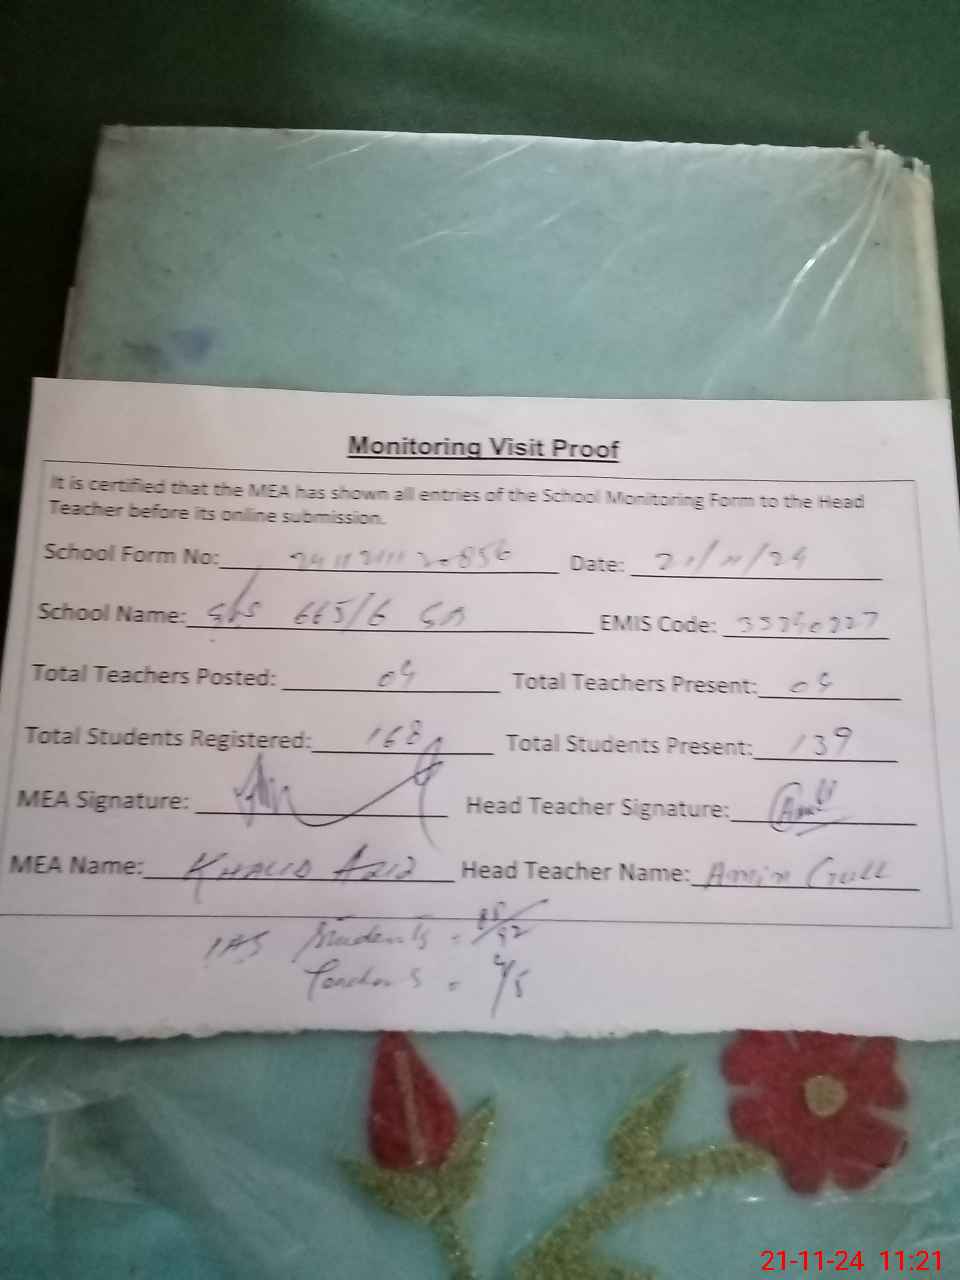 Monitoring Visit Proof
It is certified that the MEA has shown all entries of the School Monitoring Form to the Head
Teacher before its online submission.
School Form No: Date: 21/11/24
School Name: 665/6 GB EMIS Code:
Total Teachers Posted: 04 Total Teachers Present: 04
Total Students Registered: 168 Total Students Present: 139
MEA Signature: Head Teacher Signature:
MEA Name: KHALID AZIZ Head Teacher Name: Amin Gull
Students = /92
Teachers = 4/5
21-11-24 11:21